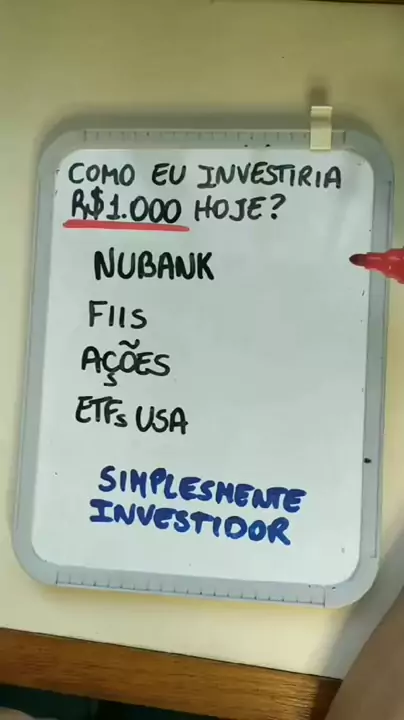 COMO EU INVESTIRIA
R$1.000 HOJE?
NUBANK
FIIS
AÇÕES
ETFs USA
SIMPLESMENTE
INVESTIDOR